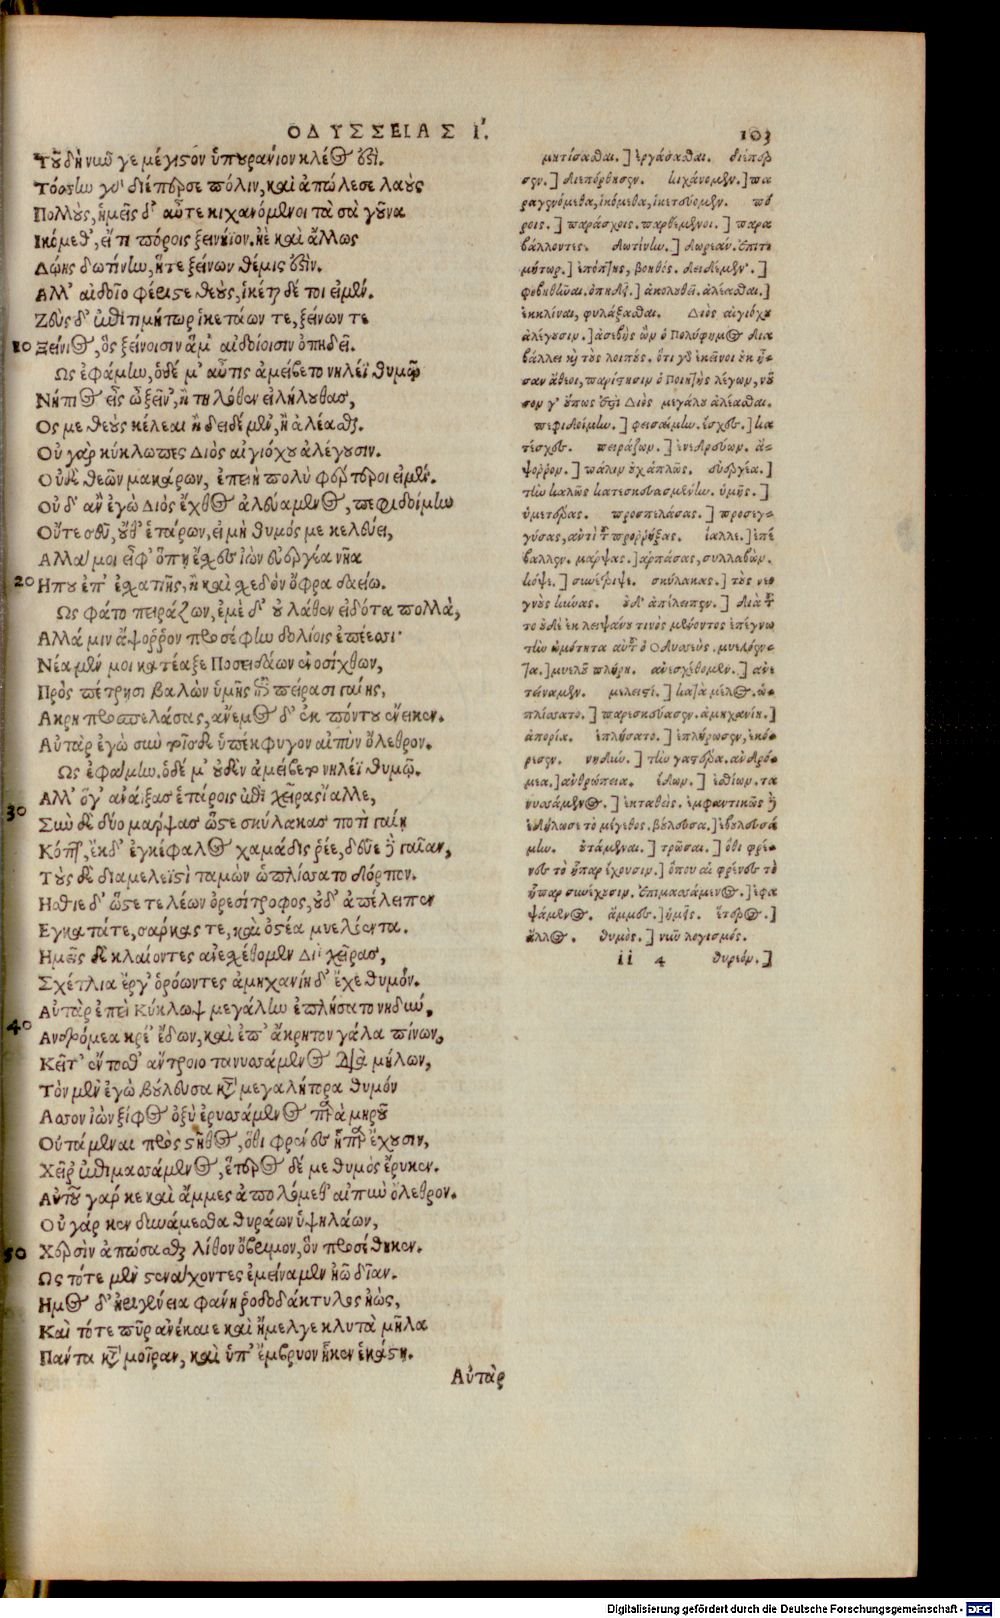 ΟΔΥΣΣΕΙΑΣ Ι.
103
Τοῦ δὴ νιῶ γε μέγιστον ὑπουράνιον κλέος ἐστί.
Τόσσην γὰρ διέπερσε πόλιν, καὶ ἀπώλεσε λαοὺς
Πολλοὺς, ἡμεῖς δ' αὖτε κιχανόμενοι τὰ σὰ γοῦνα
Ικόμεθ', εἴ τι πόροις ξεινήϊον. ἠὲ καὶ ἄλλως
Δῴης δωτίνην, ἥτε ξείνων θέμις ἐστίν.
Αλλ' αἰδοῖο φέριστε θεοὺς, ἱκέται δέ τοι εἰμέν.
Ζεὺς δ' ἐπιτιμήτωρ ἱκετάων τε, ξείνων τε
10 Ξείνιος, ὃς ξείνοισιν ἅμ' αἰδοίοισιν ὀπηδεῖ.
Ως ἐφάμην, ὁ δέ μ' αὖτις ἀμείβετο νηλέϊ θυμῷ
Νήπιος εἶς ὦ ξεῖν', ἢ τηλόθεν εἰλήλουθας,
Ος με θεοὺς κέλεαι ἢ δειδέμεν, ἢ ἀλέασθαι.
Οὐ γὰρ κύκλωπες Διὸς αἰγιόχου ἀλέγουσιν.
Οὐδὲ θεῶν μακάρων, ἐπειὴ πολὺ φέρτεροι εἰμέν.
Οὐδ' ἂν ἐγὼ Διὸς ἔχθος ἀλευάμενος, πεφιδοίμην
Οὔτε σεῦ, οὔθ' ἑτάρων, εἰ μὴ θυμός με κελεύει,
Αλλά μοι εἶφ' ὅπη ἔσχες ἰὼν εὐεργέα νῆα
20 Ηπου ἐπ' ἐσχατιῆς, ἢ καὶ σχεδὸν ὄφρα δαείω.
Ως φάτο πειράζων, ἐμὲ δ' οὐ λάθεν εἰδότα πολλὰ,
Αλλά μιν ἄψοῤῥον προσέφην δολίοις ἐπέεσσι·
Νέα μέν μοι κατέαξε Ποσειδάων ἐνοσίχθων,
Πρὸς πέτρῃσι βαλὼν ὑμῆς ἐπὶ πείρασι γαίης,
Ακρῃ προσπελάσας, ἄνεμος δ' ἐκ πόντου ἔνεικεν.
Αὐτὰρ ἐγὼ σὺν τοῖσδε ὑπέκφυγον αἰπὺν ὄλεθρον.
Ως ἐφάμην, ὁ δέ μ' οὐδὲν ἀμείβετο νηλέϊ θυμῷ.
Αλλ' ὅγ' ἀναΐξας ἑτάροις ἐπὶ χεῖρας ἴαλλε,
30 Σὺν δὲ δύο μάρψας ὥστε σκύλακας ποτὶ γαίῃ
Κόπτ', ἐκ δ' ἐγκέφαλος χαμάδις ῥέε, δεῦε δὲ γαῖαν,
Τοὺς δὲ διαμελεϊστὶ ταμὼν ὡπλίσσατο δόρπον.
Ησθιε δ' ὥστε τε λέων ὀρεσίτροφος, οὐδ' ἀπέλειπεν
Εγκατά τε, σάρκας τε, καὶ ὀστέα μυελόεντα.
Ημεῖς δὲ κλαίοντες ἀνεσχέθομεν Διῒ χεῖρας,
Σχέτλια ἔργ' ὁρόωντες ἀμηχανίη δ' ἔχε θυμόν.
Αὐτὰρ ἐπεὶ Κύκλωψ μεγάλην ἐπλήσατο νηδὺν,
40 Ανδρόμεα κρέ' ἔδων, καὶ ἐπ' ἄκρητον γάλα πίνων,
Κεῖτ' ἔντοσθ' ἄντροιο τανυσσάμενος διὰ μήλων,
Τὸν μὲν ἐγὼ βούλευσα κατὰ μεγαλήτορα θυμόν
Ασσον ἰὼν ξίφος ὀξὺ ἐρυσσάμενος παρὰ μηροῦ
Οὐτάμεναι πρὸς στῆθος, ὅθι φρένες ἧπαρ ἔχουσιν,
Χεῖρ' ἐπιμασσάμενος, ἕτερος δέ με θυμὸς ἔρυκεν.
Αὐτοῦ γάρ κε καὶ ἄμμες ἀπωλόμεθ' αἰπὺν ὄλεθρον.
Οὐ γάρ κεν δυνάμεσθα θυράων ὑψηλάων,
50 Χερσὶν ἀπώσασθαι λίθον ὄβριμον, ὃν προσέθηκεν.
Ως τότε μὲν στενάχοντες ἐμείναμεν ἠῶ δῖαν.
Ημος δ' ἠριγένεια φάνη ῥοδοδάκτυλος ἠὼς,
Καὶ τότε πῦρ ἀνέκαιε καὶ ἤμελγε κλυτὰ μῆλα
Πάντα κατὰ μοῖραν, καὶ ὑπ' ἔμβρυον ἧκεν ἑκάστῃ.
Αὐτὰρ
μητίσασθαι.] ἐργάσασθαι. διέπερ
σεν.] διεπόρθησεν. κιχάνομεν.] πα
ραγενόμεθα, ἱκόμεθα, ἱκετεύομεν. πό
ροις.] παράσχοις. παρθεμένοι.] παρα
βάλλοντες. δωτίνην.] δωρεάν. ἐπιτι
μήτωρ.] ἐπόπτης, βοηθός. δειδέμεν.]
φοβηθῆναι. ὀπηδεῖ.] ἀκολουθεῖ. ἀλέασθαι.]
ἐκκλῖναι, φυλάξασθαι. Διὸς αἰγιόχου
ἀλέγουσιν.] ἀσεβὴς ὢν ὁ Πολύφημος δια
βάλλει καὶ τοὺς λοιποὺς. ὅτι γὰρ ἐκεῖνοι οὐκ ἦ-
σαν ἄθεοι, παρίστησιν ὁ Ποιητὴς λέγων, νῦ
σον γ' οὔπως ἐστὶ Διὸς μεγάλου ἀλέασθαι.
πεφιδοίμην.] φεισαίμην. ἔσχες.] κα
τέσχες. πειράζων.] ἐνεδρεύων. ἄ-
ψοῤῥον.] πάλιν οὐχ ἁπλῶς. εὐεργέα.]
τὴν καλῶς κατεσκευασμένην. ὑμῆς.]
ὑμετέρας. προσπελάσας.] προσεγ-
γίσας, ἀντὶ τοῦ προσρήξας. ἴαλλε.] ἐπέ
βαλλεν. μάρψας.] ἁρπάσας, συλλαβών.
κόψε.] συνέτριψε. σκύλακας.] τοὺς νεο
γνοὺς κύνας. οὐδ' ἀπέλειπεν.] διὰ τοῦ
το οὐδὲ ἐκλείψανου τινὸς μένοντος ἐπέγνω
τὴν ὠμότητα αὐτοῦ ὁ Οδυσσεύς. μυελόεν-
τα.] μυελοῦ πλήρη. ἀνεσχέθομεν.] ἀνε
τείναμεν. μελεϊστί.] κατὰ μέλος. ὡ-
πλίσσατο.] παρεσκεύασεν. ἀμηχανίη.]
ἀπορία. ἐπλήσατο.] ἐπλήρωσεν, ἐκό-
ρεσεν. νηδύν.] τὴν γαστέρα. ἀνδρό-
μεα.] ἀνθρώπεια. ἔδων.] ἐσθίων. τα
νυσσάμενος.] ἐκταθείς. ἐμφαντικῶς δὲ
ἐδήλωσε τὸ μέγεθος. βούλευσα.] ἐβουλευσά
μην. οὐτάμεναι.] τρῶσαι. ὅθι φρέ-
νες τὸ ἧπαρ ἔχουσιν.] ὅπου αἱ φρένες τὸ
ἧπαρ συνέχουσιν. ἐπιμασσάμενος.] ἐφα
ψάμενος. ἄμμες.] ἡμεῖς. ἕτερος.]
ἄλλος. θυμὸς.] νῦν λογισμός.
ii 4 θυρεόν.]
Digitalisierung gefördert durch die Deutsche Forschungsgemeinschaft - DFG